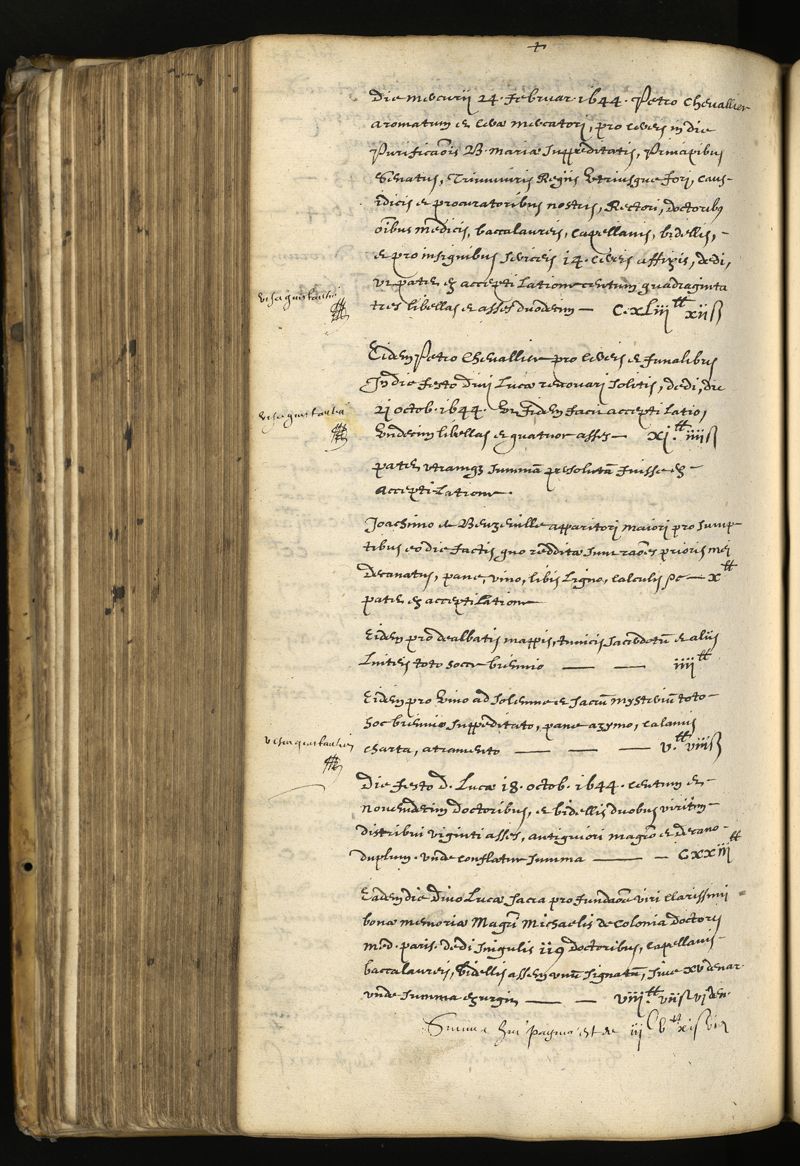 +
Die mercurij 24. Februar. 1644. Petro Chevallier
aromatum et cerae mercatori, pro cereis in die
Purificaōis B. Mariae suppeditatis, Principibus
Senatus, Triumviris Regiis utriusque fori, caus-
idicis et procuratoribus nostris, Rectori, doctoribus
oībus medicis, baccalaureis, capellanis, bidellis, -
et pro insignibus sericeis 14. cereis affixis, dedi,
ut patet ex acceptilatione centum quadraginta
visa quittantia
tres libellas et asses duodecim — C.xLiij ᵗᵗ xijß
Eidem Petro Chevallier pro cereis et funalibus
In die festo divi Lucae renovari solitis, dedi, die
visa quittantia
21 octob. 1644. ut fidem facit acceptilatio,
undecim libellas et quatuor asses — xj.ᵗᵗ iiijß
patet utramq3 summā persolutā fuisse ex
acceptilatione.
Joachimo de Beuzeville apparitori maiori pro sump-
tibus eo die factis quo redditae sunt raōes prioris mei
decanatus, pane, vino, libis ligno, calculis &c — xᵗᵗ
patet ex acceptilatione
Eidem pro dealbatis mappis, tunicis sacerdotū et aliis
linteis toto hocce biennio — — iiijᵗᵗ
Eidem pro vino ad solemne et sacrū mysteriū toto
hoc biennio suppeditato, pane azymo, calamis
visa quittantia
charta, atramento — — — v.ᵗᵗ viijß
Die festo D. Lucae 18. octob. 1644. centum et
novemdecim doctoribus, et bidellis duobus viritim
distribui viginti asses, antiquiori magrō et decano
duplum. unde conflatur summa — — Cxxiijᵗᵗ
Eadem die divo Lucae sacra pro fundaōe viri clarissimi
bonae memoriae Magrī Michaelis de Colonia doctoris
med. paris. dedi singulis 119 doctoribus, capellanis
baccalaureis, bidellis assem unū signatū, sive xv denar.
unde summa exurgit — — viijᵗᵗ viijß vj den.
Summa huius paginae est de iijᶜ vᵗᵗ xjß vjd